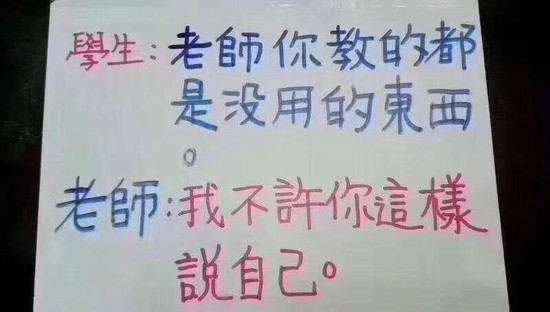 學生:老師你教的都
是没用的東西
。
老師:我不許你這樣
説自己。